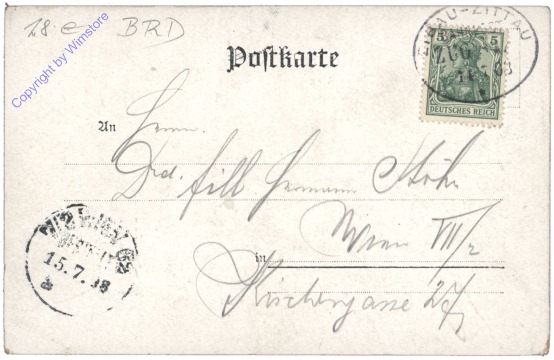 18.- BRD
Copyright by Wimstore
Postkarte
-ZITTAU
ZUG
5 5
DEUTSCHES REICH
An Herrn
Hermann Höhr
Wien VIII/2
in
Kirchengasse 27
WIEN 62
15.7.08